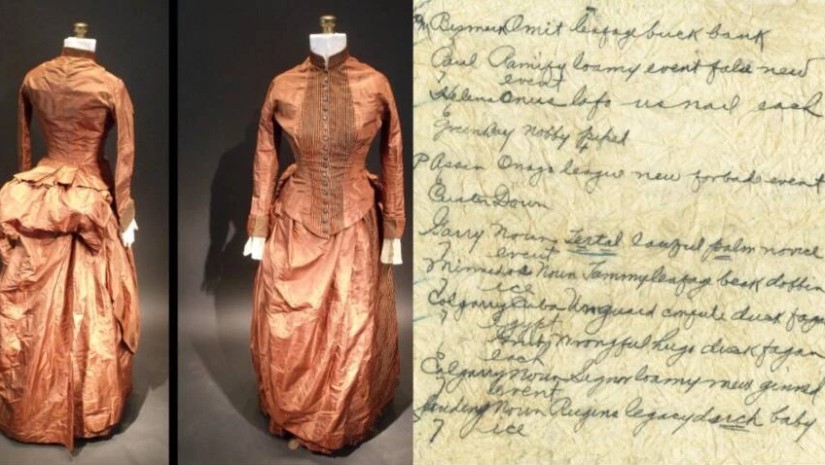 Bismark Omit leafage buck bank
Paul Ramify loamy event false new
event
Helena Onus lofo usnail each
Greenbay nobby peped
Assin Onago league new forbade event
Custer Down
Garry Noun Tertal lawful palm novice
event
Minnedosa Noun Jammyleafage beak dobbin
ice
Calgarry Cuba Unguard confute duck fagan
Egypt
Wrongful hugo duck fagan
each
Calgarry Noun Signor loamy new ginned
event
Landing Noun Rugins legacy duck baby
ice